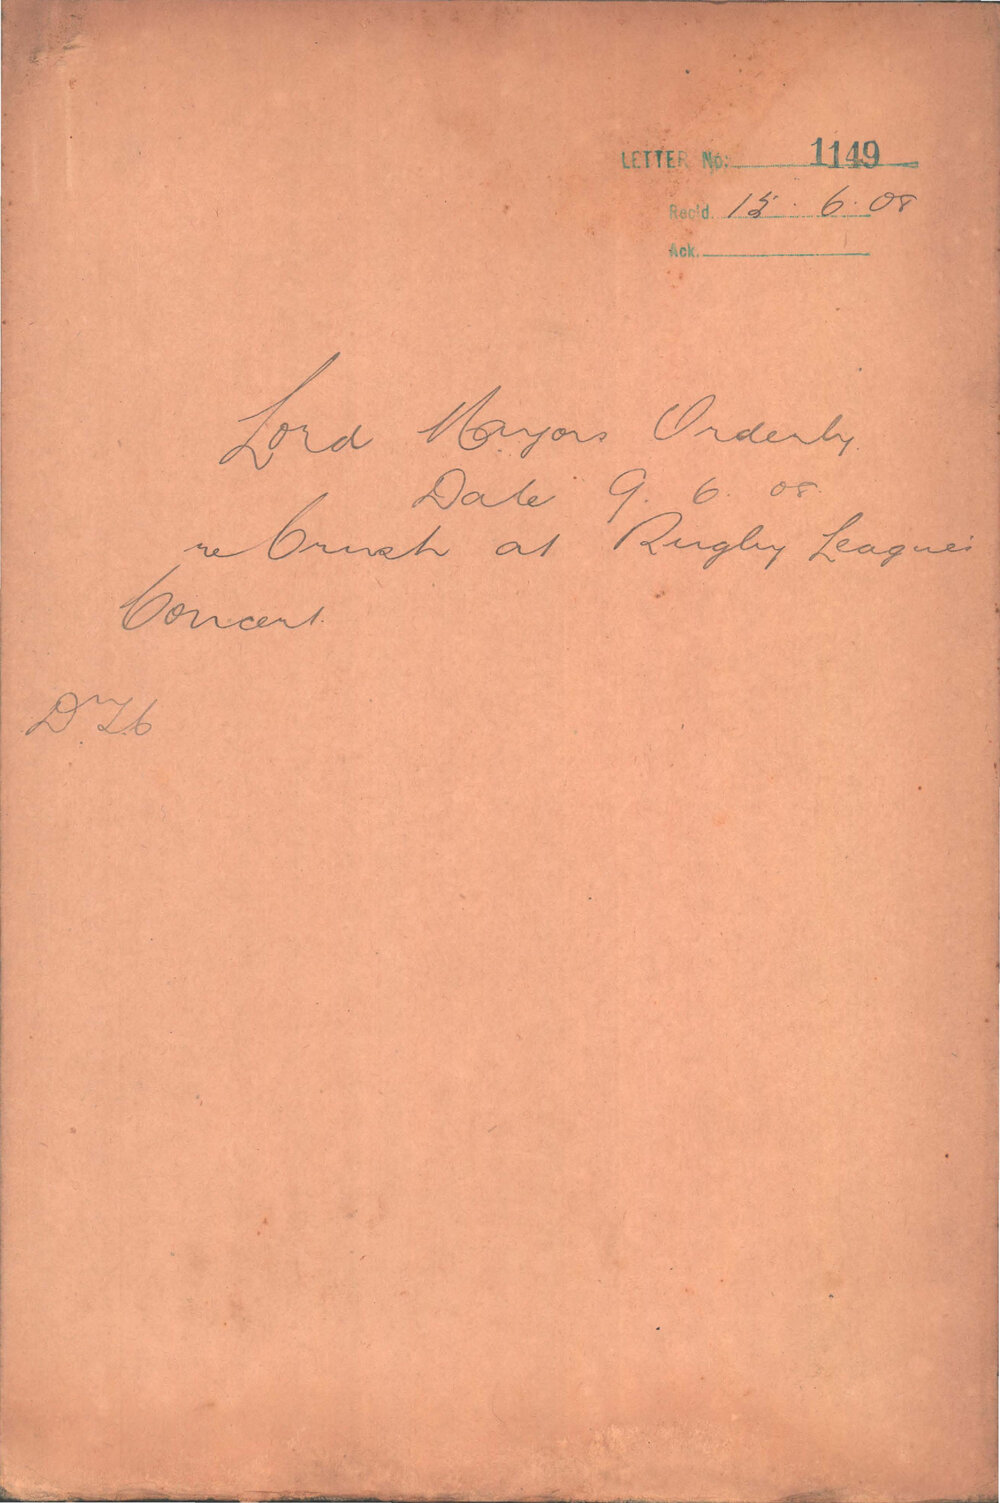 LETTER No: 1149
Rec'd. 15. 6. 08
Ack.
Lord Mayors Orderly
Date 9. 6. 08
re Crush at Rugby League's
Concert.